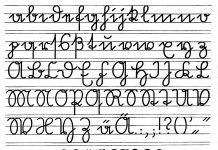 abcdefghijklmno
pqrſsßtuvwxyz
ABCDEFGHIJKL
MNOPQRSTUV
WXYZäÄ.:,;!?()',"